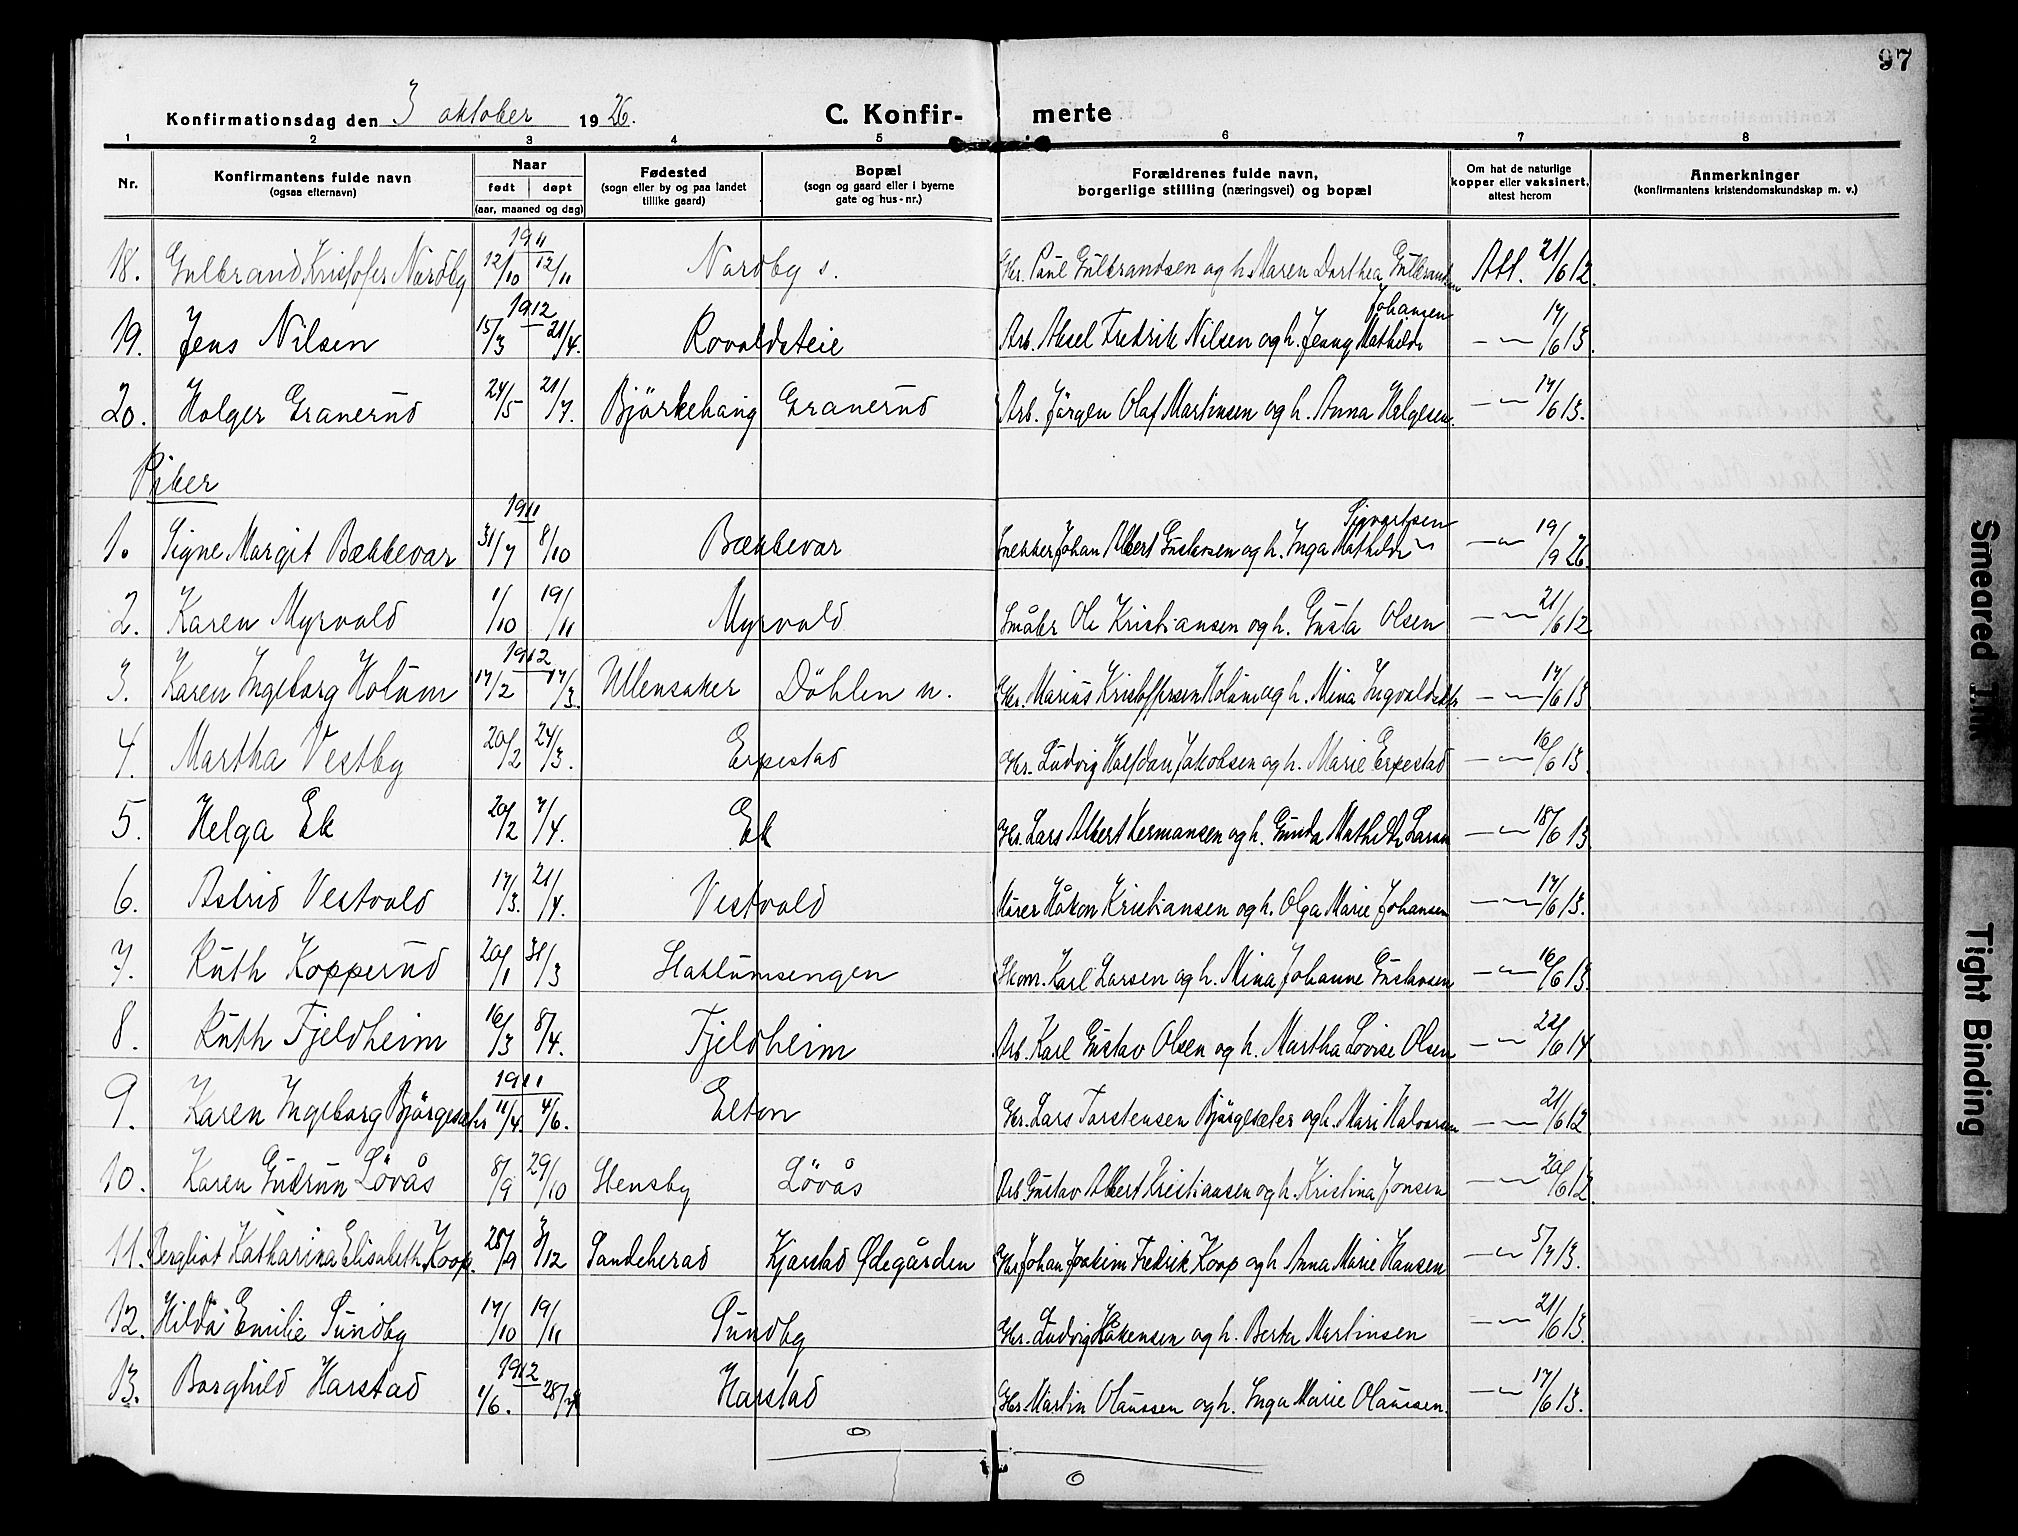 97
Konfirmationsdag den 3 oktober 1926.
C. Konfirmerte
1 2 3 4 5 6 7 8
Nr.
Konfirmantens fulde navn
(ogsaa efternavn)
Naar
født døpt
(aar, maaned og dag)
Fødested
(sogn eller by og paa landet
tillike gaard)
Bopæl
(sogn og gaard eller i byerne
gate og hus-nr.)
Forældrenes fulde navn,
borgerlige stilling (næringsvei) og bopæl
Om hat de naturlige
kopper eller vaksinert,
attest herom
Anmerkninger
(konfirmantens kristendomskundskap m. v.)
1911
18. Gulbrand Kristofer Nordby 12/10 12/11 Nordby s. Gbr. Paul Gulbrandsen og h. Maren Dorthea Gulbrandsen Att. 21/6 12.
1912
19. Jens Nilsen 15/3 21/4. Rovoldsteie Arb. Aksel Fredrik Nilsen og h. Jenny Mathilde Johansen — " — 17/6 13.
20. Holger Granerud 24/5 21/7. Bjørkehaug Granerud Arb. Jørgen Olaf Martinsen og h. Anna Helgesen. — " — 17/6 13.
Piker
1911
1. Signe Margit Bækkevar 31/7 8/10 Bækkevar Snekker Johan Albert Gustavsen og h. Inga Mathilde Sigvartsen — " — 19/9 26.
2. Karen Myrvold 1/10 19/11 Myrvold Småbr Ole Kristiansen og h. Gusta Olsen — " — 21/6 12
1912
3. Karen Ingeborg Holum 17/2 17/3. Ullensaker Döhlen n. Gbr. Marius Kristoffersen Holum og h. Mina Ingvaldsdtr — " — 17/6 13
4. Martha Vestby 20/2 24/3. Erpestad Gbr. Ludvig Halfdan Jakobsen og h. Marie Erpestad — " — 16/6 13.
5. Helga Ek 20/2 7/4. Ek Gbr. Lars Albert Hermansen og h. Gunda Mathilde Larsen — " — 18/6 13
6. Astrid Vestvold 17/3. 21/4. Vestvold Murer Håkon Kristiansen og h. Olga Marie Johansen — " — 17/6 13.
7. Ruth Kopperud 20/1 31/3 Hattumsengen Skom. Karl Larsen og h. Mina Johanne Gustavsen — " — 16/6 13.
8. Ruth Fjeldheim 16/3 8/4. Fjeldheim Arb. Karl Gustav Olsen og h. Martha Lovise Olsen — " — 22/6 14.
1911
9. Karen Ingeborg Bjørgesæter 11/4. 4/6. Elton Gbr. Lars Torstensen Bjørgesæter og h. Mari Halvorsen — " — 21/6 12
10. Karen Gudrun Lövås 8/9 29/10 Stensby Lövås Arb Gustav Albert Kristiansen og h. Kristina Jonsen — " — 20/6 12.
11. Bergliot Katharina Elisabeth Koop. 28/9 3/12 Sandeherad Kjorstad Ødegården Gbr Johan Joakim Fredrik Koop og h Anna Marie Hansen — " — 5/7 13.
12. Hilda Emilie Sundby 17/10 19/11 Sundby Gbr. Ludvig Håkensen og h. Berta Martinsen — " — 21/6 13.
1912
13. Borghild Harstad 1/6. 28/7 Harstad Gbr Martin Olaussen og h. Inga Marie Olaussen. — " — 17/6 13.
Smeared Ink
Tight Binding